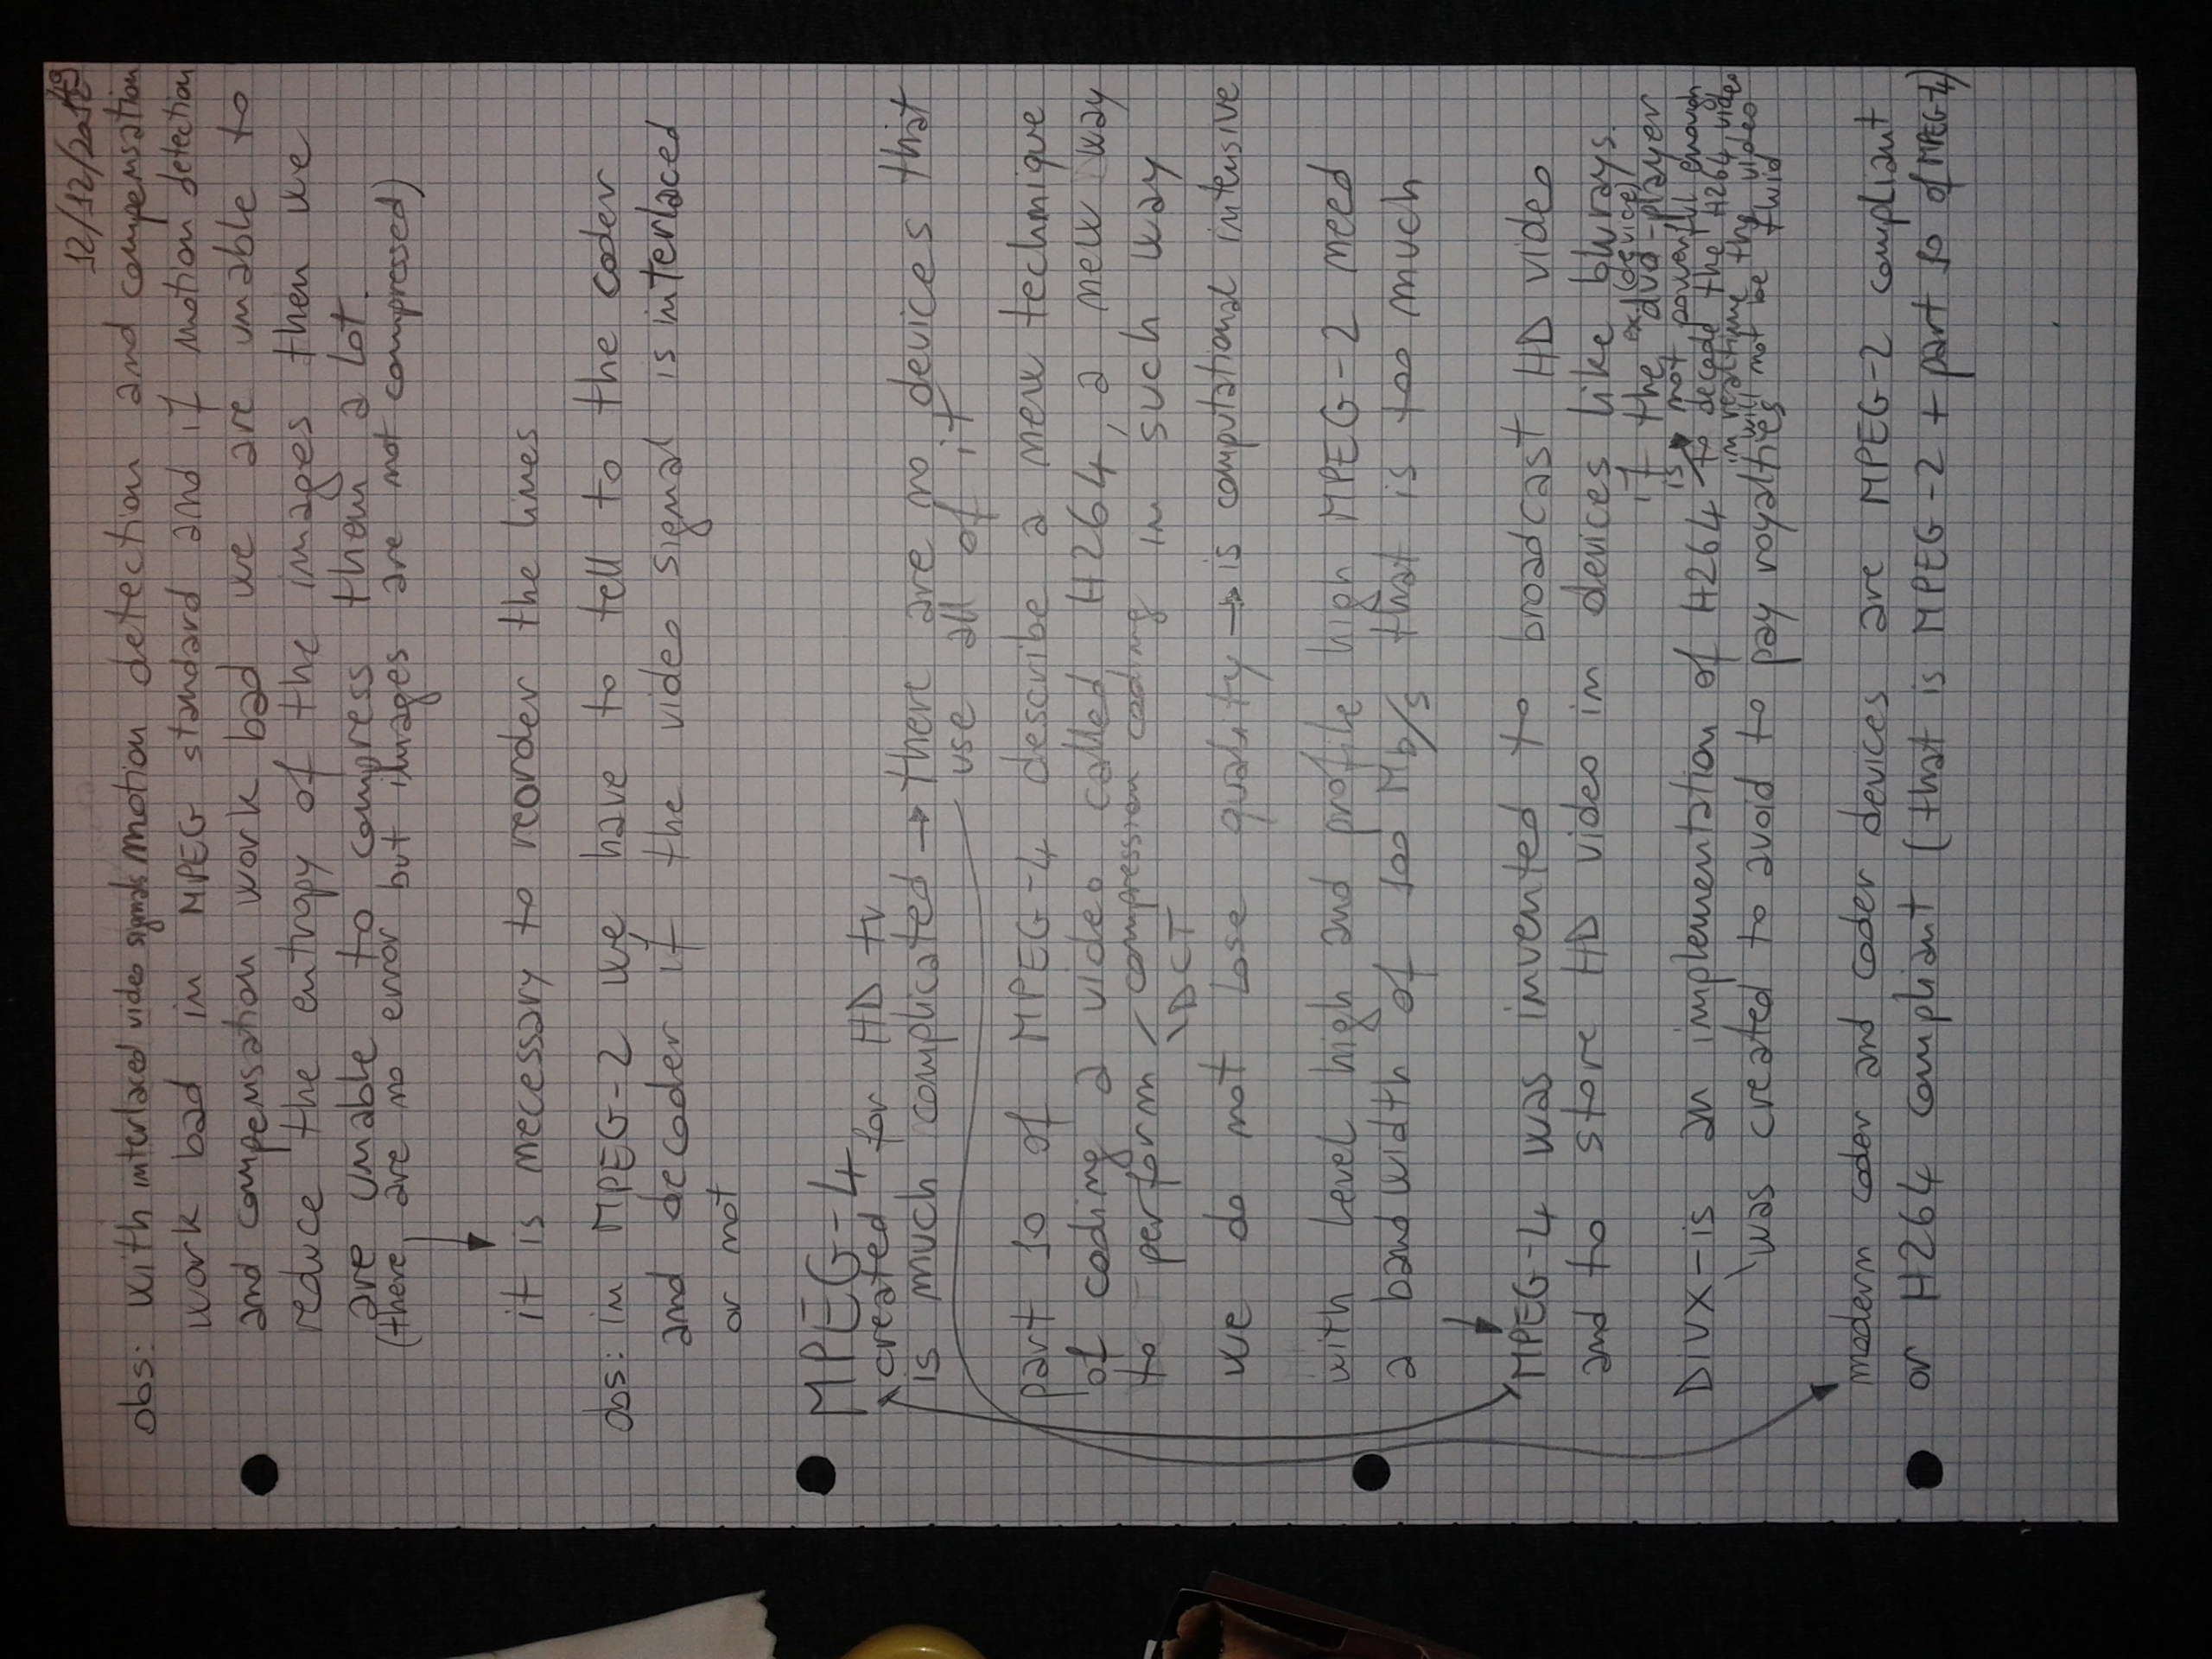 12/12/2012
obs: with interlaced video signals motion detection and compensation
work bad in MPEG standard and if motion detection
and compensation work bad we are unable to
reduce the entropy of the images then we
are unable to compress them a lot.
(there are no error but images are not compressed)
it is necessary to reorder the lines
obs: in MPEG-2 we have to tell to the coder
and decoder if the video signal is interlaced
or not
MPEG-4
created for HD tv
is much complicated → there are no devices that
use all of it
part 10 of MPEG-4 describe a new technique
of coding a video called H264, a new way
to perform compression coding in such way
DCT
we do not lose quality → is computational intensive
with level high and profile high MPEG-2 need
a bandwidth of 100 Mb/s that is too much
MPEG-4 was invented to broadcast HD video
and to store HD video in devices like blurays.
ex. (device)
if the dvd-player
is not powerful enough
DIVX - is an implementation of H264 → to decode the H264 video
in realtime the video
will not be fluid
was created to avoid to pay royalties
modern coder and coder devices are MPEG-2 compliant
or H264 compliant (that is MPEG-2 + part 10 of MPEG-4)